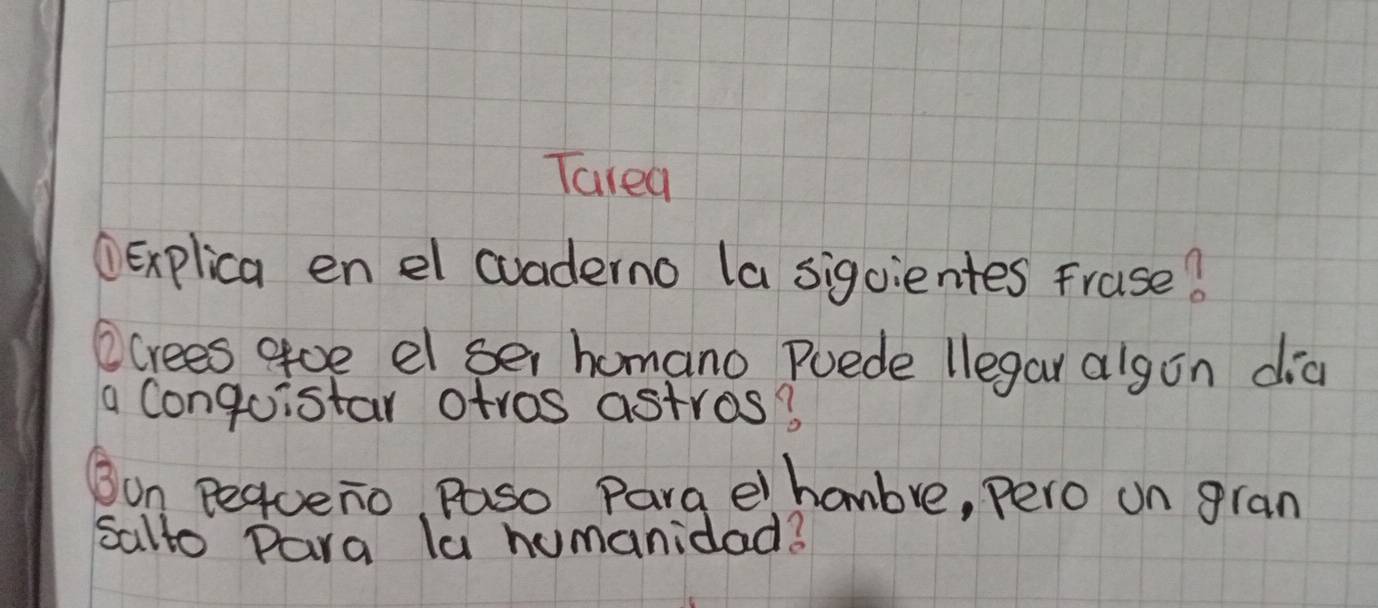 Tarea
① Explica en el cuaderno la siguientes Frase?
② Crees que el ser humano Puede llegar algún día
a Conquistar otros astros?
③ Un Pequeño Paso Para el hombre, Pero un gran
Salto Para la humanidad?